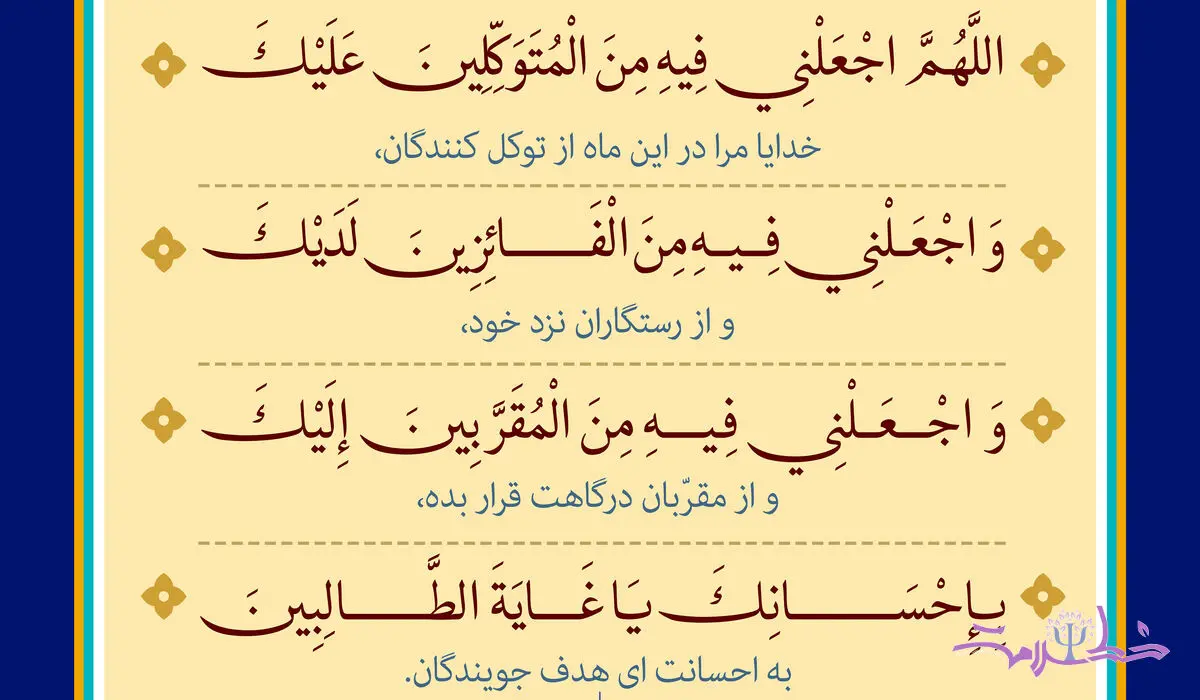 اللَّهُمَّ اجْعَلْنِي فِيهِ مِنَ الْمُتَوَكِّلِينَ عَلَيْكَ
خدایا مرا در این ماه از توکل کنندگان،
وَ اجْعَلْنِي فِيهِ مِنَ الْفَائِزِينَ لَدَيْكَ
و از رستگاران نزد خود،
وَ اجْعَلْنِي فِيهِ مِنَ الْمُقَرَّبِينَ إِلَيْكَ
و از مقرّبان درگاهت قرار بده،
بِإِحْسَانِكَ يَا غَايَةَ الطَّالِبِينَ
به احسانت ای هدف جویندگان.
خط سلامت